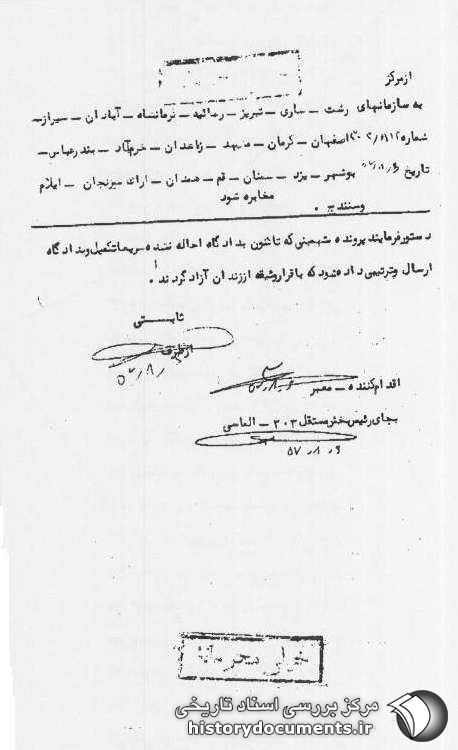 از مرکز
به سازمانهای رشت – ساری – تبریز – رضائیه – کرمانشاه – آبادان – شیراز –
شماره اصفهان – کرمان – مشهد – زاهدان – خرم‌آباد – بندرعباس –
تاریخ بوشهر – یزد – سمنان – قم – همدان – اراک – سیرجان – ایلام
و سنندج . مخابره شود
دستور فرمایند پرونده متهمینی که تاکنون بدادگاه احاله نشده سریعا تکمیل و بدادگاه
ارسال و ترتیبی داده شود که با قرار وثیقه از زندان آزاد گردند .
ثابتی
از طرف
۵۷/۸/
اقدام‌کننده – معبر
بجای رئیس بخش مستقل ۳۰۳ – الماسی
۵۷/۸/۶
خیلی محرمانه
مرکز بررسی اسناد تاریخی
historydocuments.ir